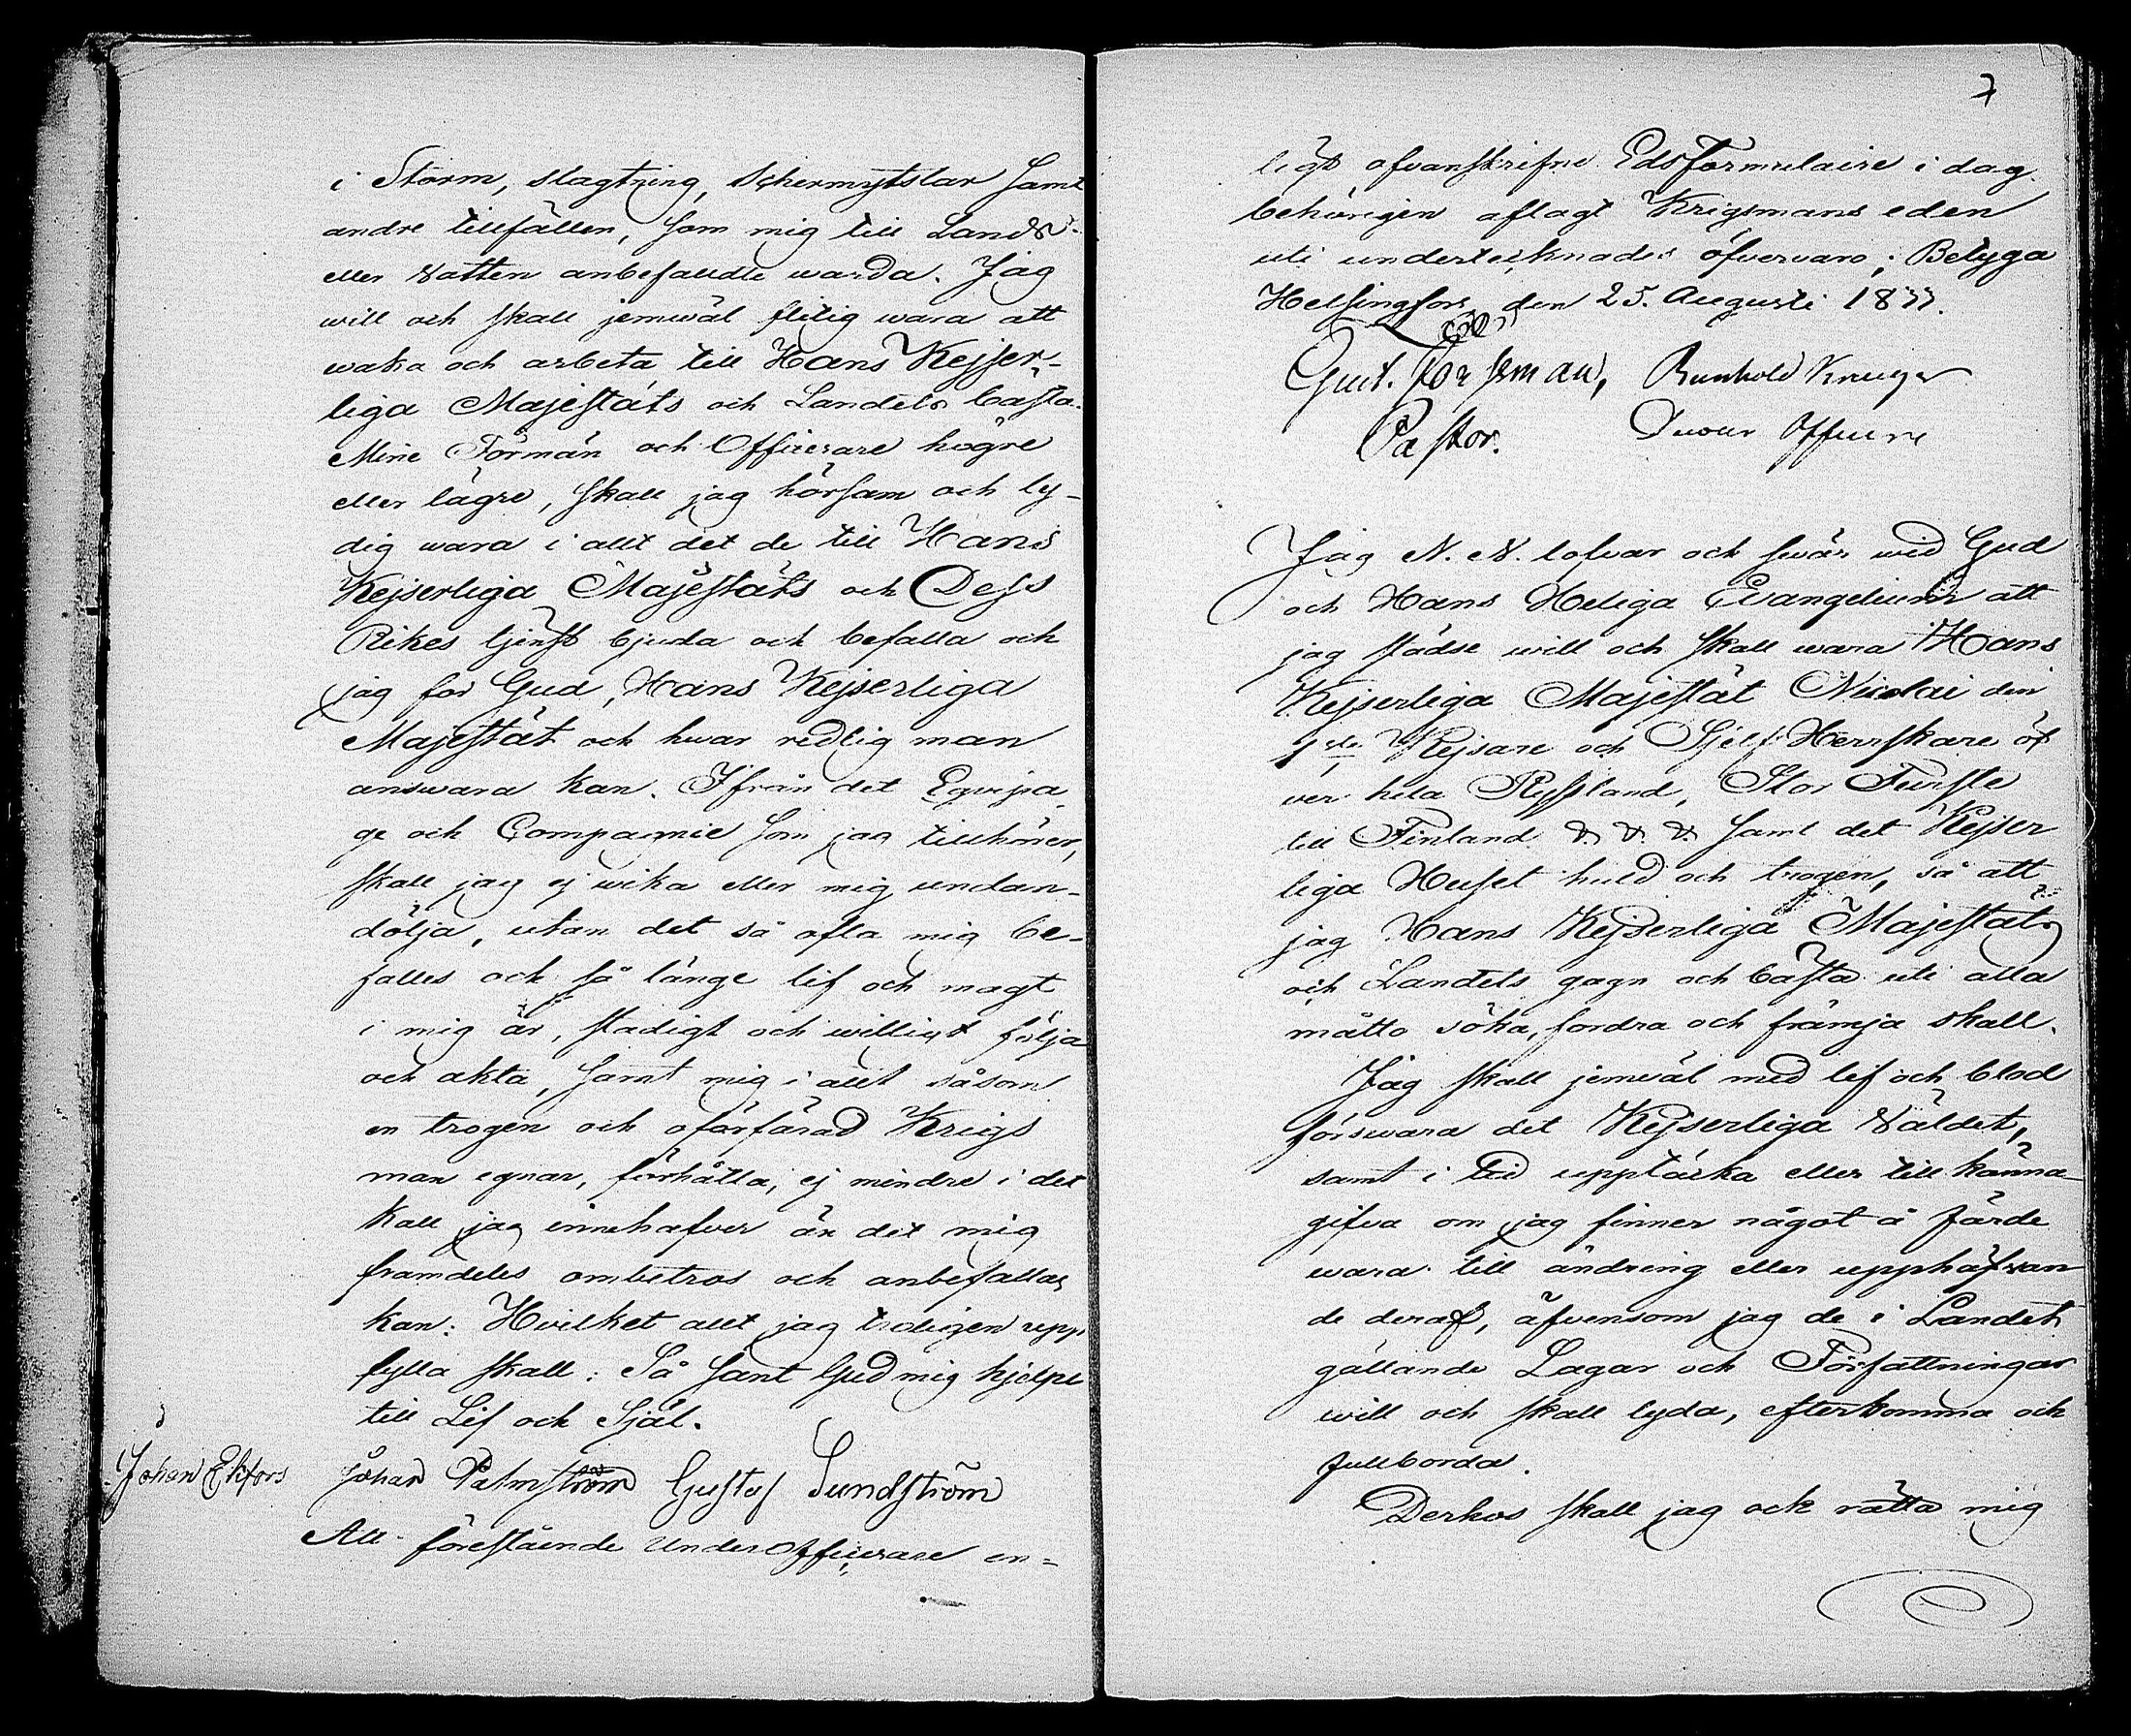 i Storm, slagtning, Schermytslar samt
andre tillfällen, som mig till Lands
eller Vatten anbefallde warda. Jag
will och skall jemwäl flitig wara att
waka och arbeta till Hans Kejser-
liga Majestäts och Landets bästa.
Mine Förmän och Officerare högre
eller lägre, skall jag hörsam och ly-
dig wara i allt det de till Hans
Kejserliga Majestäts och Dess
Rikes tjenst bjuda och befalla och
jag för Gud, Hans Kejserliga
Majestät och hwar redlig man
answara kan. Ifrån det Equipa
ge och Compagnie som jag tillhörer,
skall jag ej wika eller mig undan-
dölja, utan det så ofta mig be-
falles och så länge lif och magt
i mig är, stadigt och willigt följa
och akta, samt mig i allt såsom
en trogen och oförfärad Krigs
man egnar, förhålla, ej mindre i det
Kall jag innehafver än det mig
framdeles ombetros och anbefallas
kan: Hvilket allt jag troligen upp
fylla skall: Så sant Gud mig hjelpe
till Lif och Själ.
Johan Ekfors Johan Palmström Gustaf Sundström
Att förestående UnderOfficerare en-
7
ligt ofvanskrifne Edsformulaire i dag
behörigen aflagt Krigsmans eden
uti undertecknades öfvervaro; Betyga
Helsingfors den 25. Augusti 1833.
Gust. Forsman, Reinhold Kruger
Pastor. Duour Officere
Jag N. N. lofvar och swär wid Gud
och Hans Heliga Evangelium att
jag städse will och skall wara Hans
Kejserliga Majestät Nicolai den
1ste Kejsare och Sjelf Herrskare öf
ver hela Ryssland, Stor Furste
till Finland &. &. &. samt det Kejser
liga Huset huld och trogen, så att
jag Hans Kejserliga Majestäts
och Landets gagn och bästa uti alla
måtto söka, fordra och främja skall.
Jag skall jemwäl med lif och blod
förswara det Kejserliga Väldet,
samt i tid upptäcka eller till känna
gifva om jag finner något å färde
wara till ändring eller upphäfvan
de deraf, äfvensom jag de i Landet
gällande Lagar och Författningar
will och skall lyda, efterkomma och
fullborda.
Derhos skall jag ock rätta mig